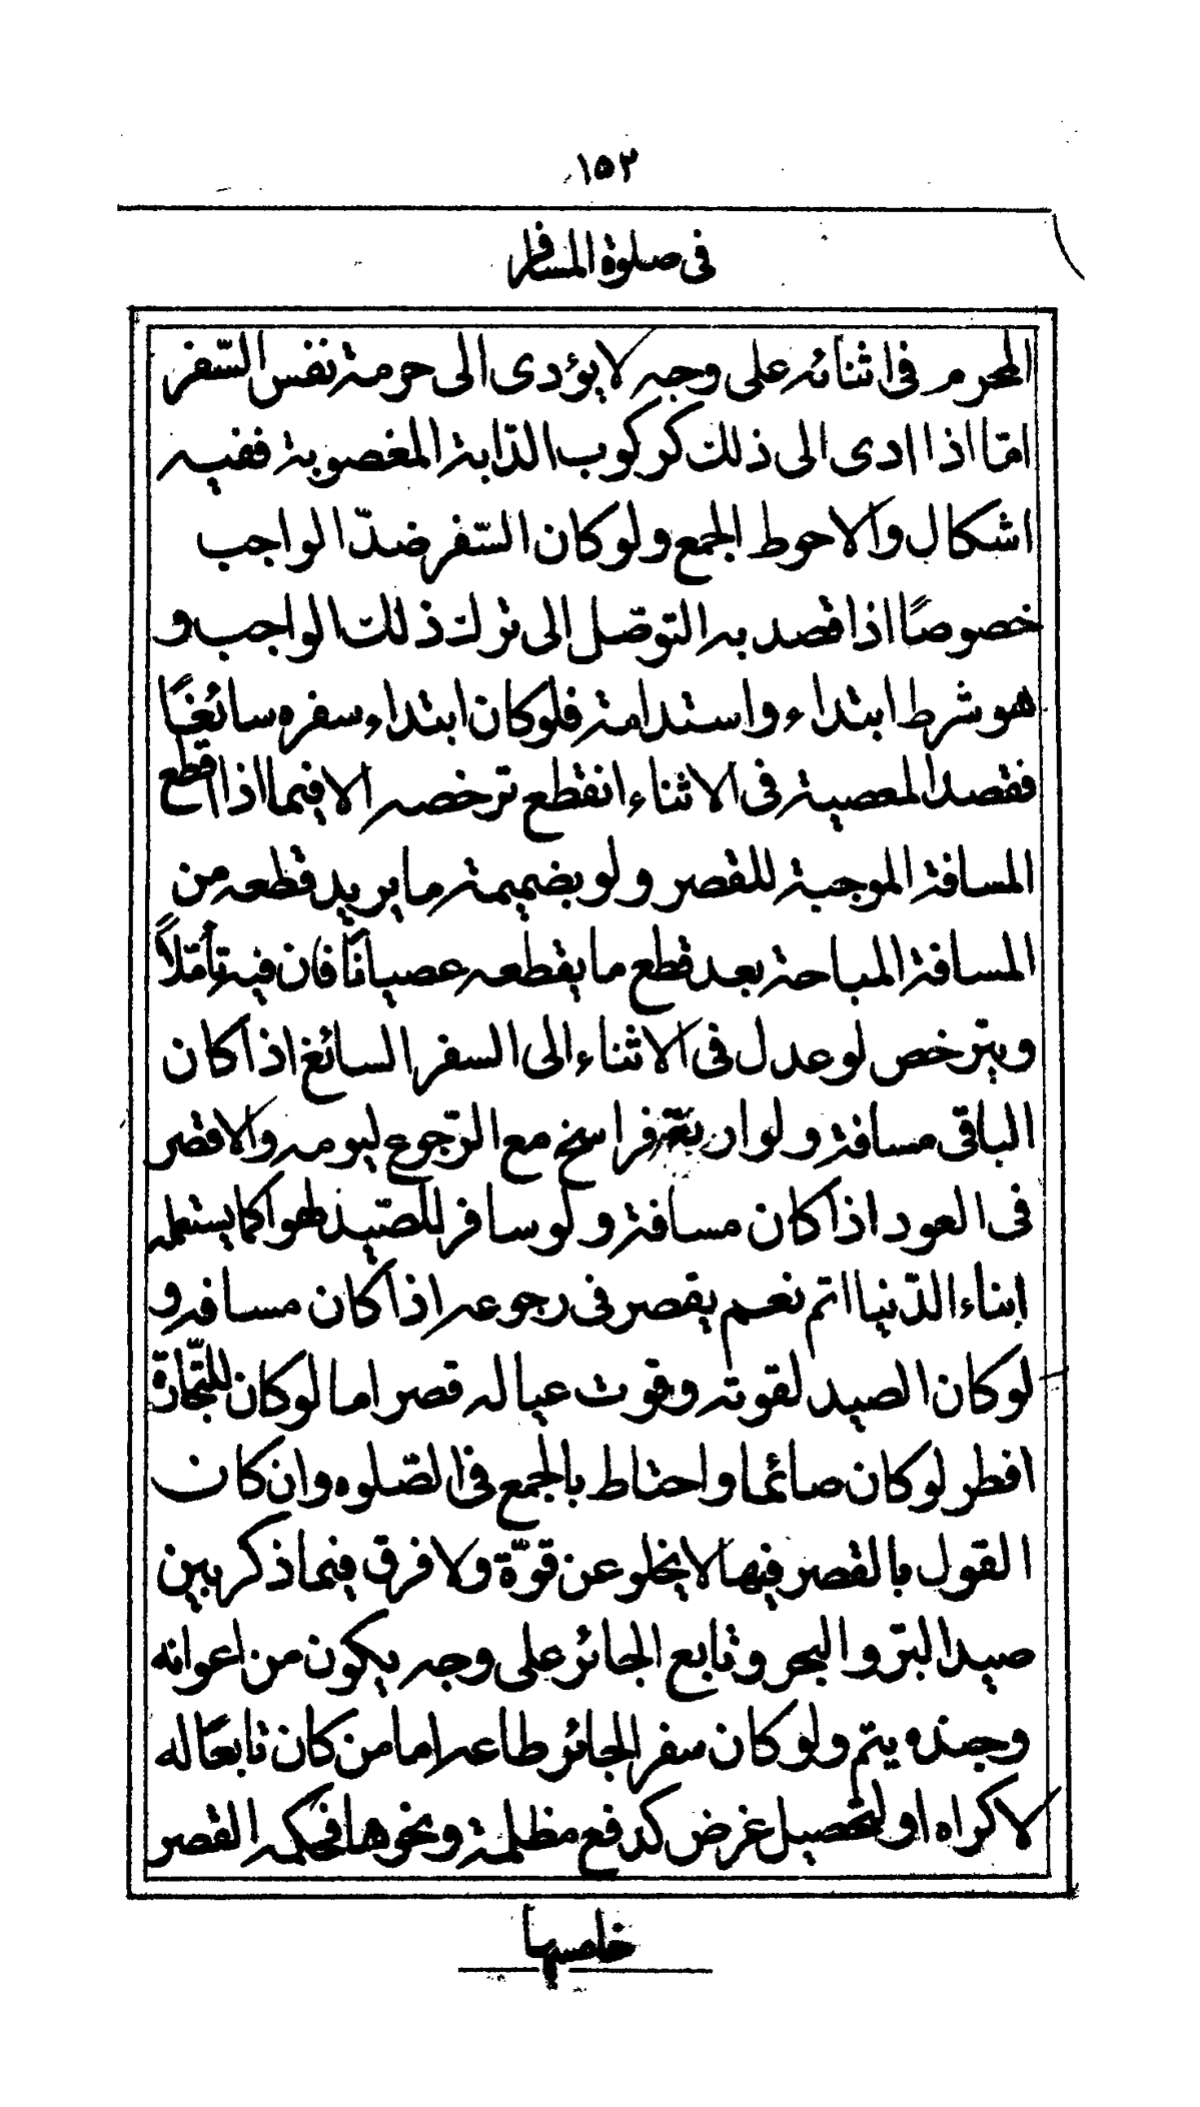 ١٥٣
فى صلوة المسافر
المحرم فى اثنائه على وجه لا يؤدى الى حرمة نفس السّفر
امّا اذا ادى الى ذلك كركوب الدّابة المغصوبة ففيه
اشكال والاحوط الجمع ولو كان السّفر ضدّ الواجب
خصوصًا اذا قصد به التوصّل الى ترك ذلك الواجب و
هو شرط ابتداء واستدامة فلو كان ابتداء سفره سائغًا
فقصد المعصية فى الاثناء انقطع ترخصه الا فيما اذا قطع
المسافة الموجبة للقصر ولو بضميمة ما يريد قطعه من
المسافة المباحة بعد قطع ما يقطعه عصيانًا فان فيه تأمّلاً
ويترخص لو عدل فى الاثناء الى السفر السائغ اذا كان
الباقى مسافة ولو اربعة فراسخ مع الرّجوع ليومه والا قصر
فى العود اذا كان مسافة ولو سافر للصّيد لهوا كما يستعمله
ابناء الدّنيا اتم نعم يقصر فى رجوعه اذا كان مسافه و
لو كان الصيد لقوته وقوت عياله قصر اما لو كان للتّجارة
افطر لو كان صائما واحتاط بالجمع فى الصّلوه وان كان
القول بالقصر فيها لا يخلو عن قوّة ولا فرق فيما ذكر بين
صيد البرّ والبحر وتابع الجائر على وجه يكون من اعوانه
وجنده يتم ولو كان سفر الجائر طاعه اما من كان تابعًا له
لاكراه او لتحصيل غرض كدفع مظلمة ونحوها فحكمه القصر
خامسها